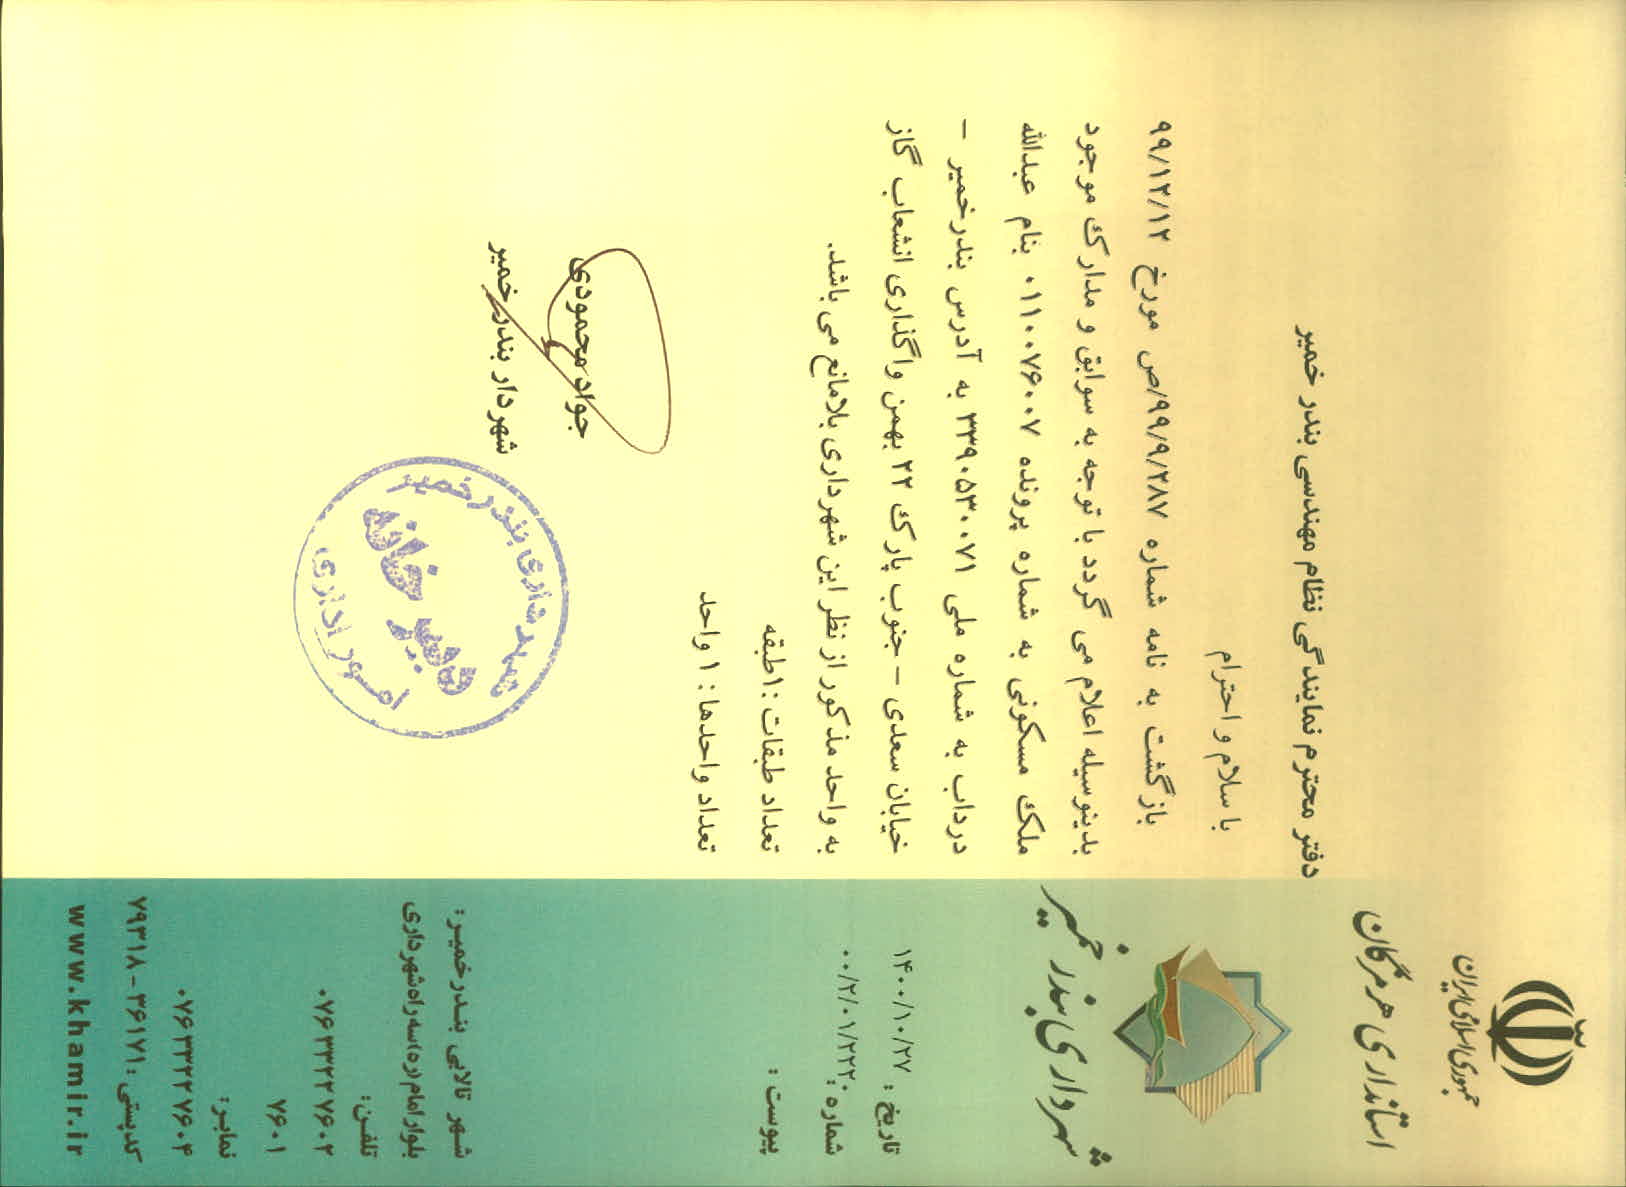 جمهوری اسلامی ایران
استانداری هرمزگان
شهرداری بندر خمیر
تاریخ : ۱۴۰۰/۱۰/۲۷
شماره : ۰۰/۲/۰۱/۲۲۲۰
پیوست :
دفتر محترم نمایندگی نظام مهندسی بندر خمیر
با سلام و احترام
بازگشت به نامه شماره ۹۹/۹/۲۸۷/ص مورخ ۹۹/۱۲/۱۲
بدینوسیله اعلام می گردد با توجه به سوابق و مدارک موجود
ملک مسکونی به شماره پرونده ۰۱۱۰۰۷۶۰۰۷ بنام عبدالله
درداب به شماره ملی ۳۳۹۰۵۳۰۰۷۱ به آدرس بندرخمیر -
خیابان سعدی - جنوب پارک ۲۲ بهمن واگذاری انشعاب گاز
به واحد مذکور از نظر این شهرداری بلامانع می باشد.
تعداد طبقات :۱طبقه
تعداد واحدها : ۱ واحد
جواد محمودی
شهردار بندر خمیر
شهرداری بندر خمیر
دبیر خانه
امور اداری
شهر تالابی بندرخمیر :
بلوار امام (ره) سه راه شهرداری
تلفن:
۰۷۶ ۳۳۲۲ ۷۶۰۲
۷۶۰۱
نمابر:
۰۷۶ ۳۳۲۲ ۷۶۰۴
کدپستی : ۳۶۱۷۱ - ۷۹۳۱۸
www.khamir.ir